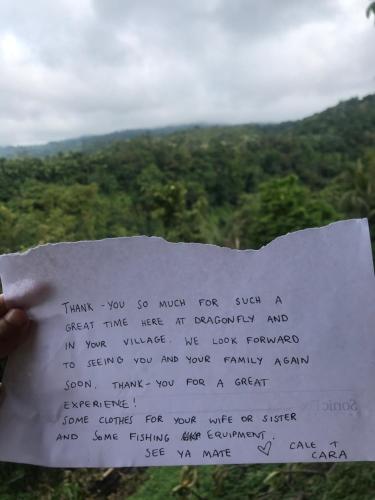 THANK-YOU SO MUCH FOR SUCH A
GREAT TIME HERE AT DRAGONFLY AND
IN YOUR VILLAGE. WE LOOK FORWARD
TO SEEING YOU AND YOUR FAMILY AGAIN
SOON. THANK-YOU FOR A GREAT
EXPERIENCE!
SOME CLOTHES FOR YOUR WIFE OR SISTER
AND SOME FISHING EQUIPMENT.
SEE YA MATE ♡ CALE +
CARA